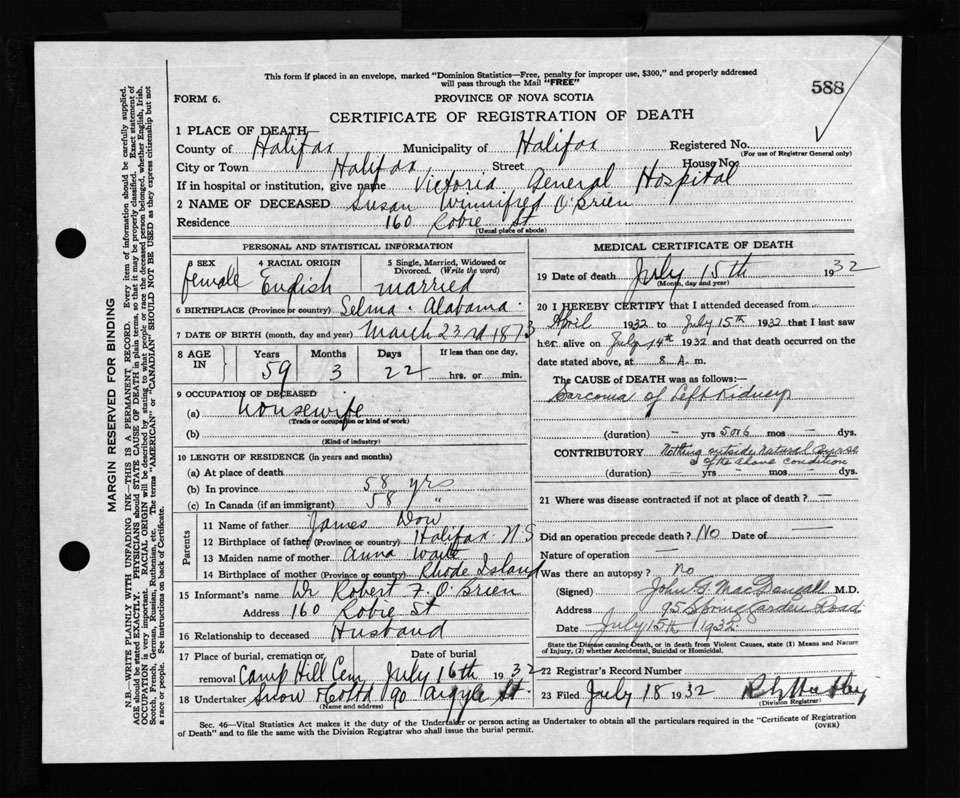 This form if placed in an envelope, marked "Dominion Statistics—Free, penalty for improper use, $300," and properly addressed
will pass through the Mail "FREE"
588
FORM 6.
PROVINCE OF NOVA SCOTIA
CERTIFICATE OF REGISTRATION OF DEATH
1 PLACE OF DEATH
County of Halifax Municipality of Halifax Registered No.
(For use of Registrar General only)
City or Town Halifax Street House No.
If in hospital or institution, give name Victoria General Hospital
2 NAME OF DECEASED Susan Winnifred O'Brien
Residence 160 Robie St
(Usual place of abode)
MARGIN RESERVED FOR BINDING
N.B.—WRITE PLAINLY WITH UNFADING INK—THIS IS A PERMANENT RECORD. Every item of information should be carefully supplied.
AGE should be stated EXACTLY. PHYSICIANS should STATE CAUSE OF DEATH in plain terms, so that it may be properly classified. Exact statement of
OCCUPATION is very important. RACIAL ORIGIN will be described by stating to what people or race the deceased person belonged, whether English, Irish,
Scotch, French, German, Russian, Ruthenian, etc. The terms "AMERICAN" or "CANADIAN" SHOULD NOT BE USED as they express citizenship but not
a race or people. See instructions on back of Certificate.
PERSONAL AND STATISTICAL INFORMATION
3 SEX female
4 RACIAL ORIGIN English
5 Single, Married, Widowed or
Divorced. (Write the word)
married
6 BIRTHPLACE (Province or country) Selma. Alabama.
7 DATE OF BIRTH (month, day and year) March 23rd 1873
8 AGE IN
Years Months Days If less than one day,
59 3 22 hrs. or min.
9 OCCUPATION OF DECEASED
(a) Housewife
(Trade or occupation or kind of work)
(b)
(Kind of industry)
10 LENGTH OF RESIDENCE (in years and months)
(a) At place of death
(b) In province 58 yrs
(c) In Canada (if an immigrant) 58 "
Parents
11 Name of father James Dow
12 Birthplace of father (Province or country) Halifax N.S
13 Maiden name of mother Anna Waitt
14 Birthplace of mother (Province or country) Rhode Island
15 Informant's name Dr Robert F. O'Brien
Address 160 Robie St
16 Relationship to deceased Husband
17 Place of burial, cremation or Date of burial
removal Camp Hill Cem July 16th 1932
18 Undertaker Snow 90 Argyle St.
(Name and address)
MEDICAL CERTIFICATE OF DEATH
19 Date of death July 15th 1932
(Month, day and year)
20 I HEREBY CERTIFY that I attended deceased from
April 1932 to July 15th 1932 that I last saw
her alive on July 14th 1932 and that death occurred on the
date stated above, at 8 A. m.
The CAUSE OF DEATH was as follows:—
Sarcoma of Left Kidney
(duration) — yrs 5 or 6 mos — dys.
CONTRIBUTORY Nothing outside natural course
of the above condition
(duration) yrs — mos dys.
21 Where was disease contracted if not at place of death? —
Did an operation precede death? No Date of
Nature of operation —
Was there an autopsy? No
(Signed) John G MacDougall M.D.
Address 95 Spring Garden Road
Date July 15th 1932
State the Disease causing Death, or in death from Violent Causes, state (1) Means and Nature
of Injury, (2) whether Accidental, Suicidal or Homicidal.
22 Registrar's Record Number
23 Filed July 18 1932
(Division Registrar)
Sec. 46—Vital Statistics Act makes it the duty of the Undertaker or person acting as Undertaker to obtain all the particulars required in the "Certificate of Registration
of Death" and to file the same with the Division Registrar who shall issue the burial permit.
(OVER)